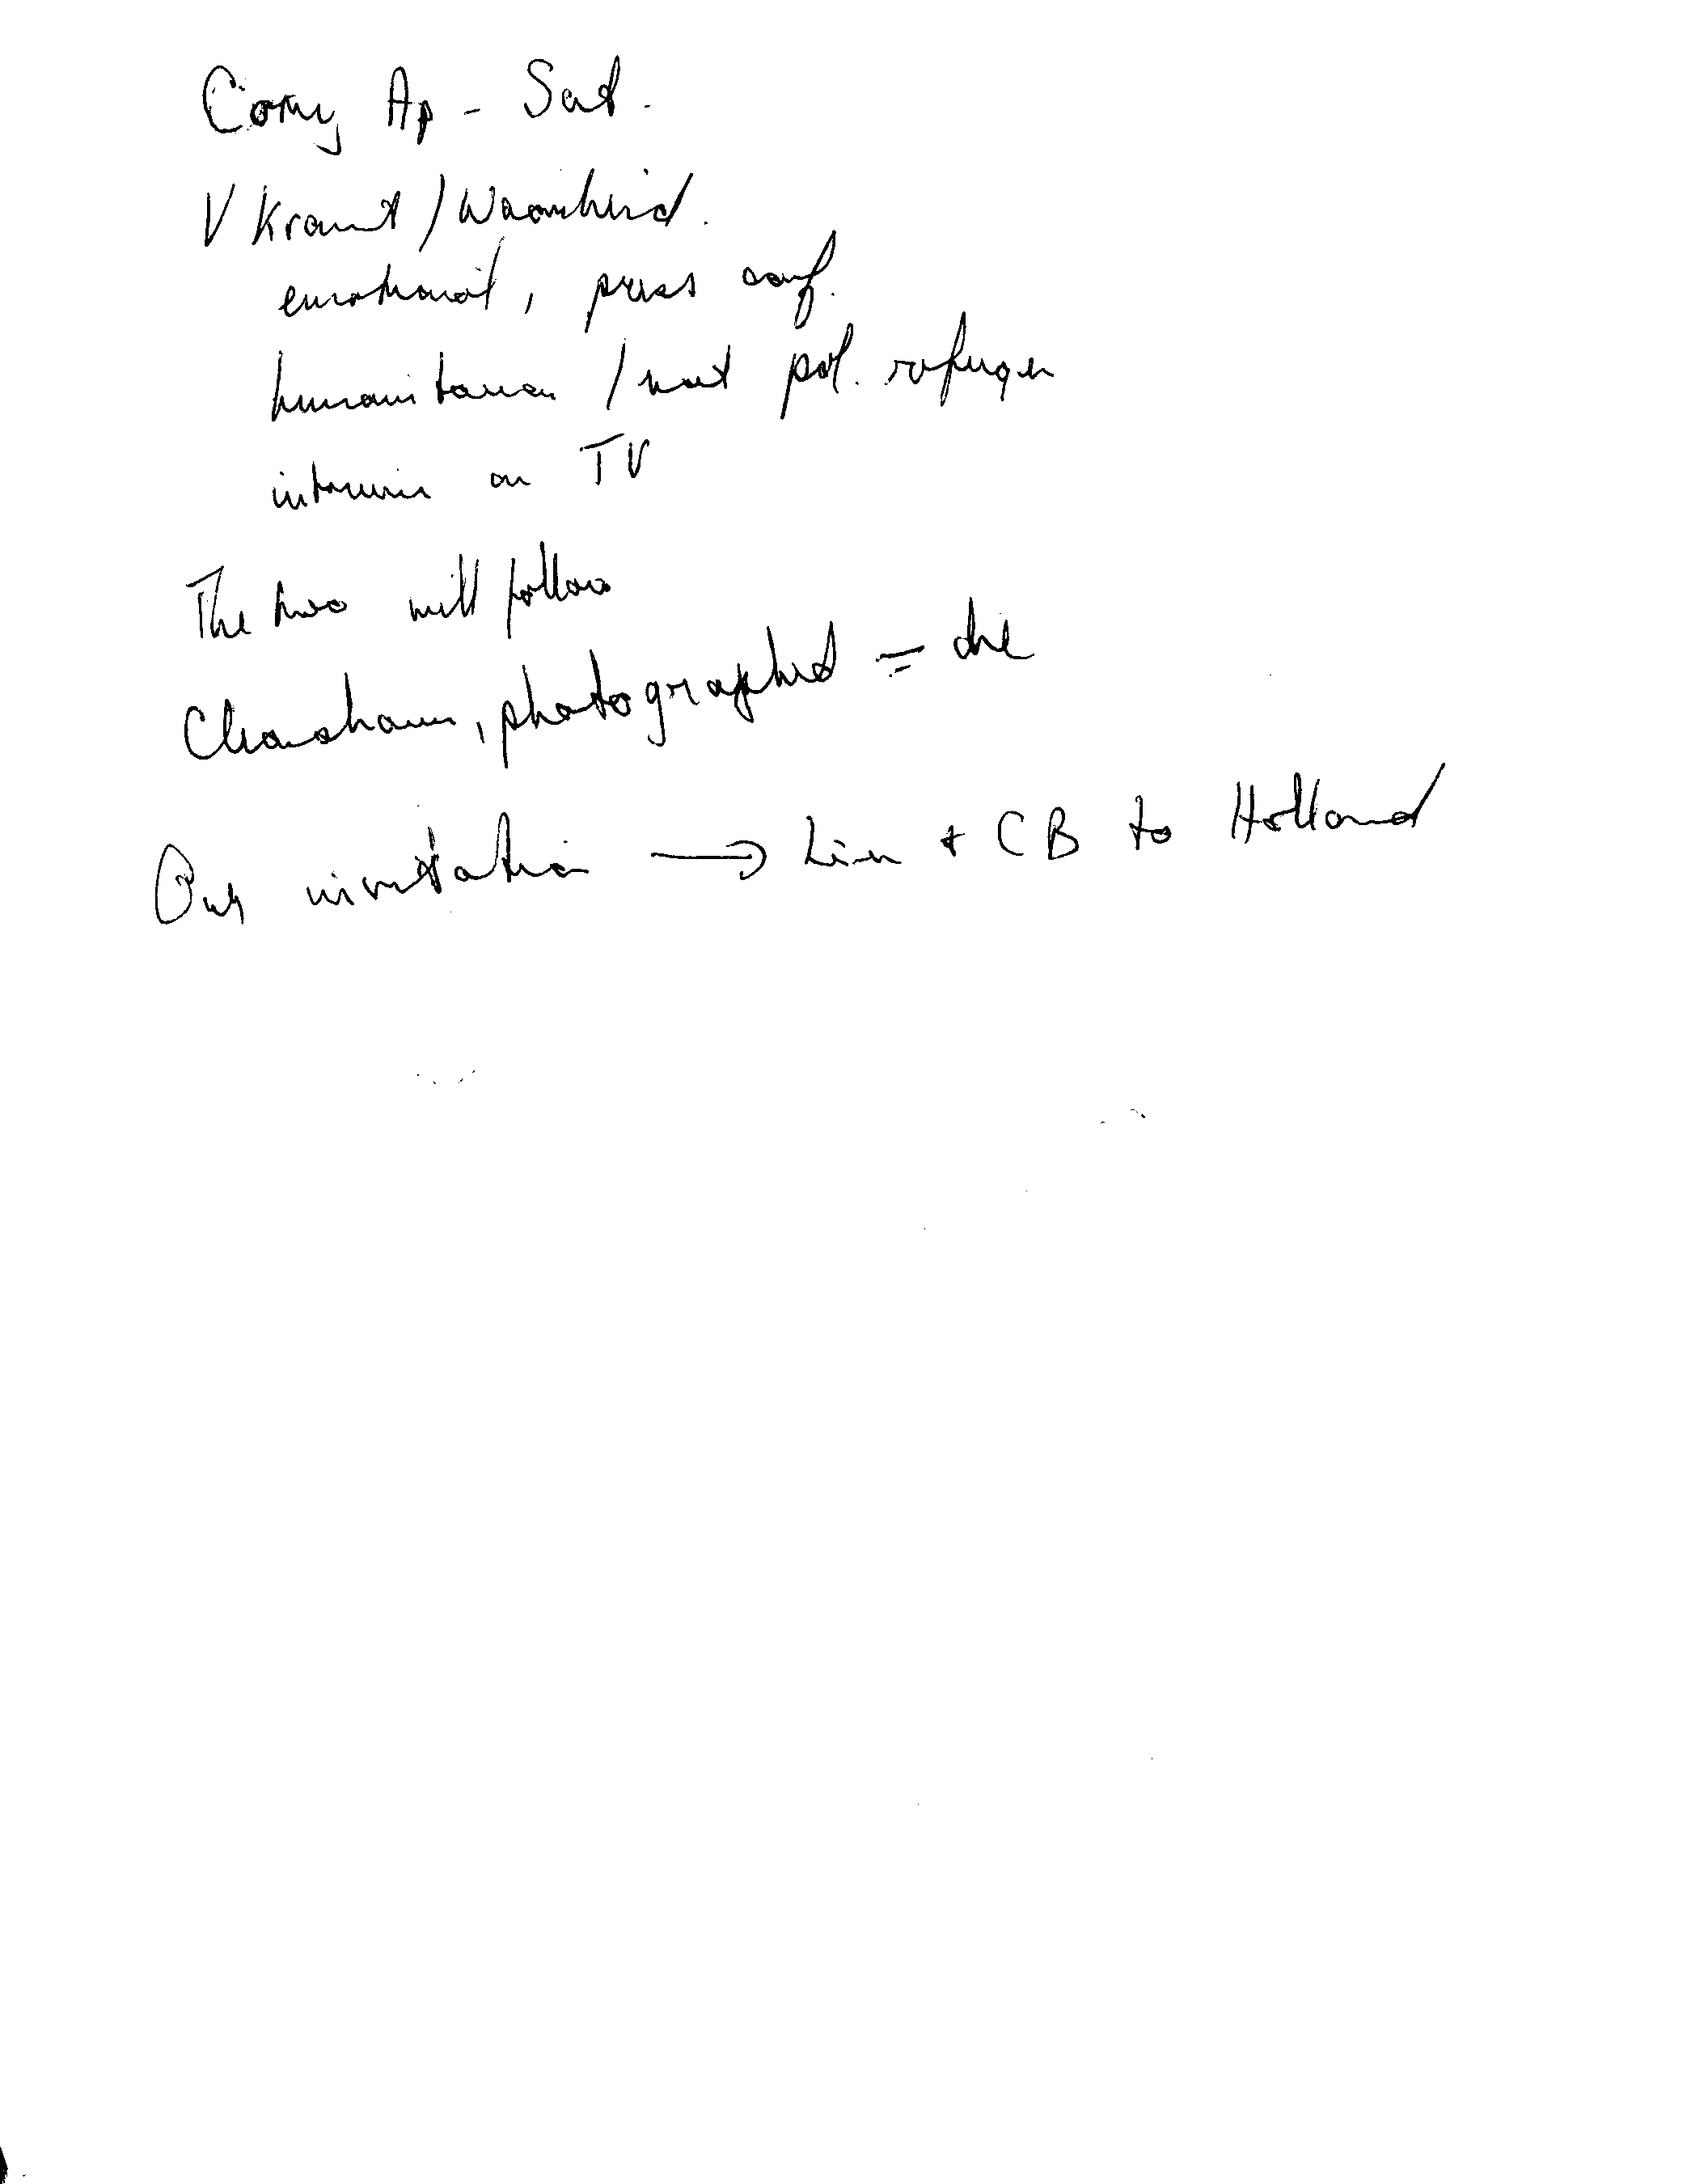 Corny Ap - Sat.
V Krant / Waarheid.
emotional, press conf.
humanitarian / not pol. refugee
interview on TV
The two will follow
photographed = the
Our invitation → Lien + CB to Holland